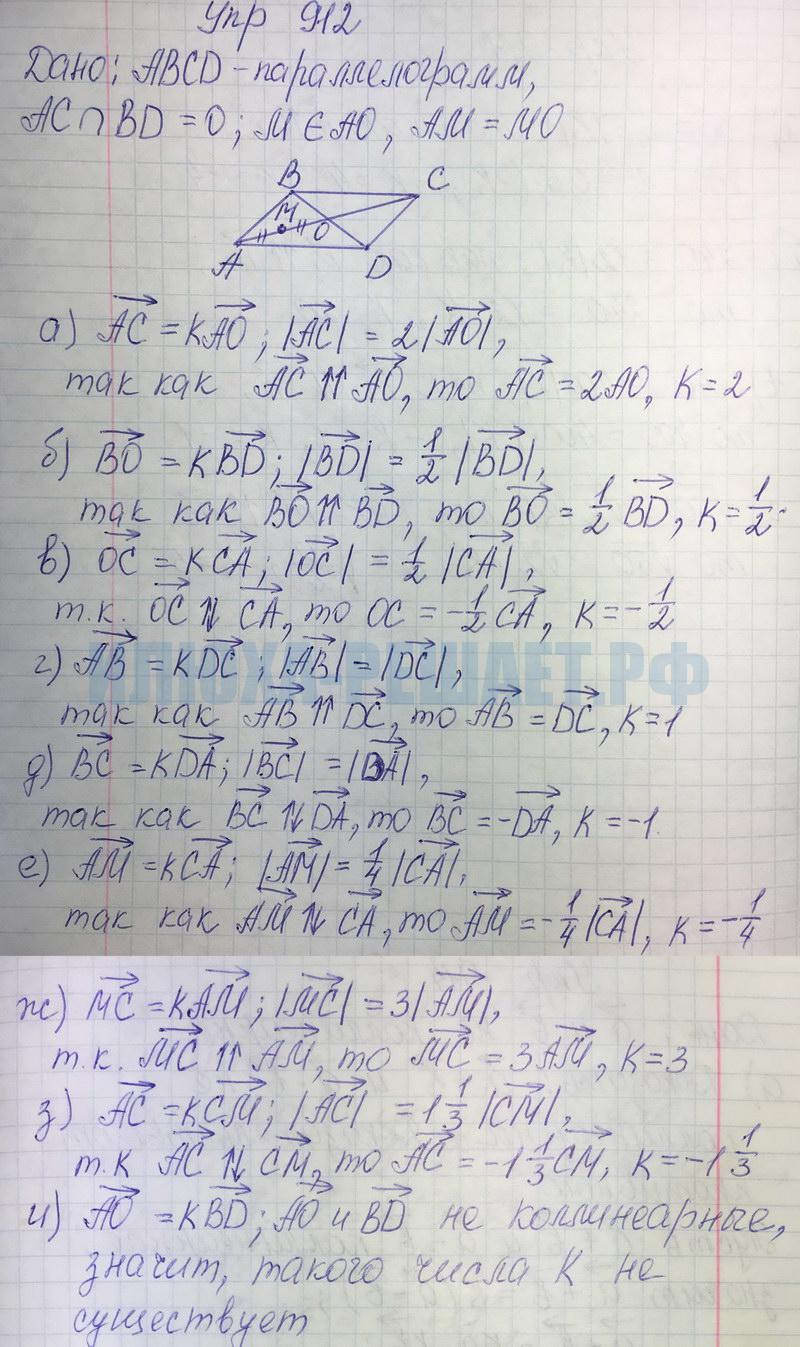 Упр 912
Дано: ABCD - параллелограмм,
AC ∩ BD = O; M ∈ AO, AM = MO
B
C
M
O
A
D
а) AC⃗ = KAO⃗; |AC⃗| = 2|AO⃗|,
так как AC⃗ ⇈ AO⃗, то AC⃗ = 2AO, K = 2
б) BO⃗ = KBD⃗; |BD⃗| = 1/2 |BD⃗|,
так как BO⃗ ⇈ BD⃗, то BO⃗ = 1/2 BD⃗, K = 1/2
в) OC⃗ = KCA⃗; |OC⃗| = 1/2 |CA⃗|,
т.к. OC⃗ ⇅ CA⃗, то OC = -1/2 CA⃗, K = -1/2
г) AB⃗ = KDC⃗; |AB⃗| = |DC⃗|,
ИЛЮХА-РЕШАЕТ.РФ
так как AB⃗ ⇈ DC⃗, то AB⃗ = DC⃗, K = 1
д) BC⃗ = KDA⃗; |BC⃗| = |DA⃗|,
так как BC⃗ ⇅ DA⃗, то BC⃗ = -DA⃗, K = -1.
е) AM⃗ = KCA⃗; |AM⃗| = 1/4 |CA⃗|,
так как AM⃗ ⇅ CA⃗, то AM⃗ = -1/4 |CA⃗|, K = -1/4
ж) MC⃗ = KAM⃗; |MC⃗| = 3|AM⃗|,
т.к. MC⃗ ⇈ AM⃗, то MC⃗ = 3AM⃗, K = 3
з) AC⃗ = KCM⃗; |AC⃗| = 1 1/3 |CM⃗|,
т.к AC⃗ ⇅ CM⃗, то AC⃗ = -1 1/3 CM⃗, K = -1 1/3
и) AO⃗ = KBD⃗; AO⃗ и BD⃗ не коллинеарные,
значит, такого числа K не
существует